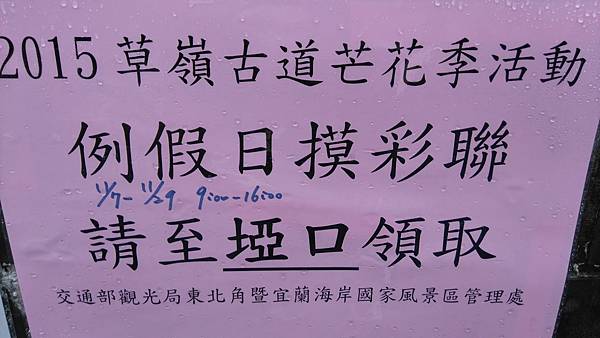 2015草嶺古道芒花季活動
例假日摸彩聯
11/7-11/29 9:00-16:00
請至埡口領取
交通部觀光局東北角暨宜蘭海岸國家風景區管理處